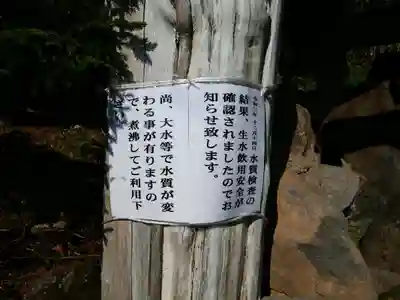 水質検査の
結果、生水飲用安全が
確認されましたのでお
知らせ致します。
尚、大水等で水質が変
わる事が有りますの
で、煮沸してご利用下